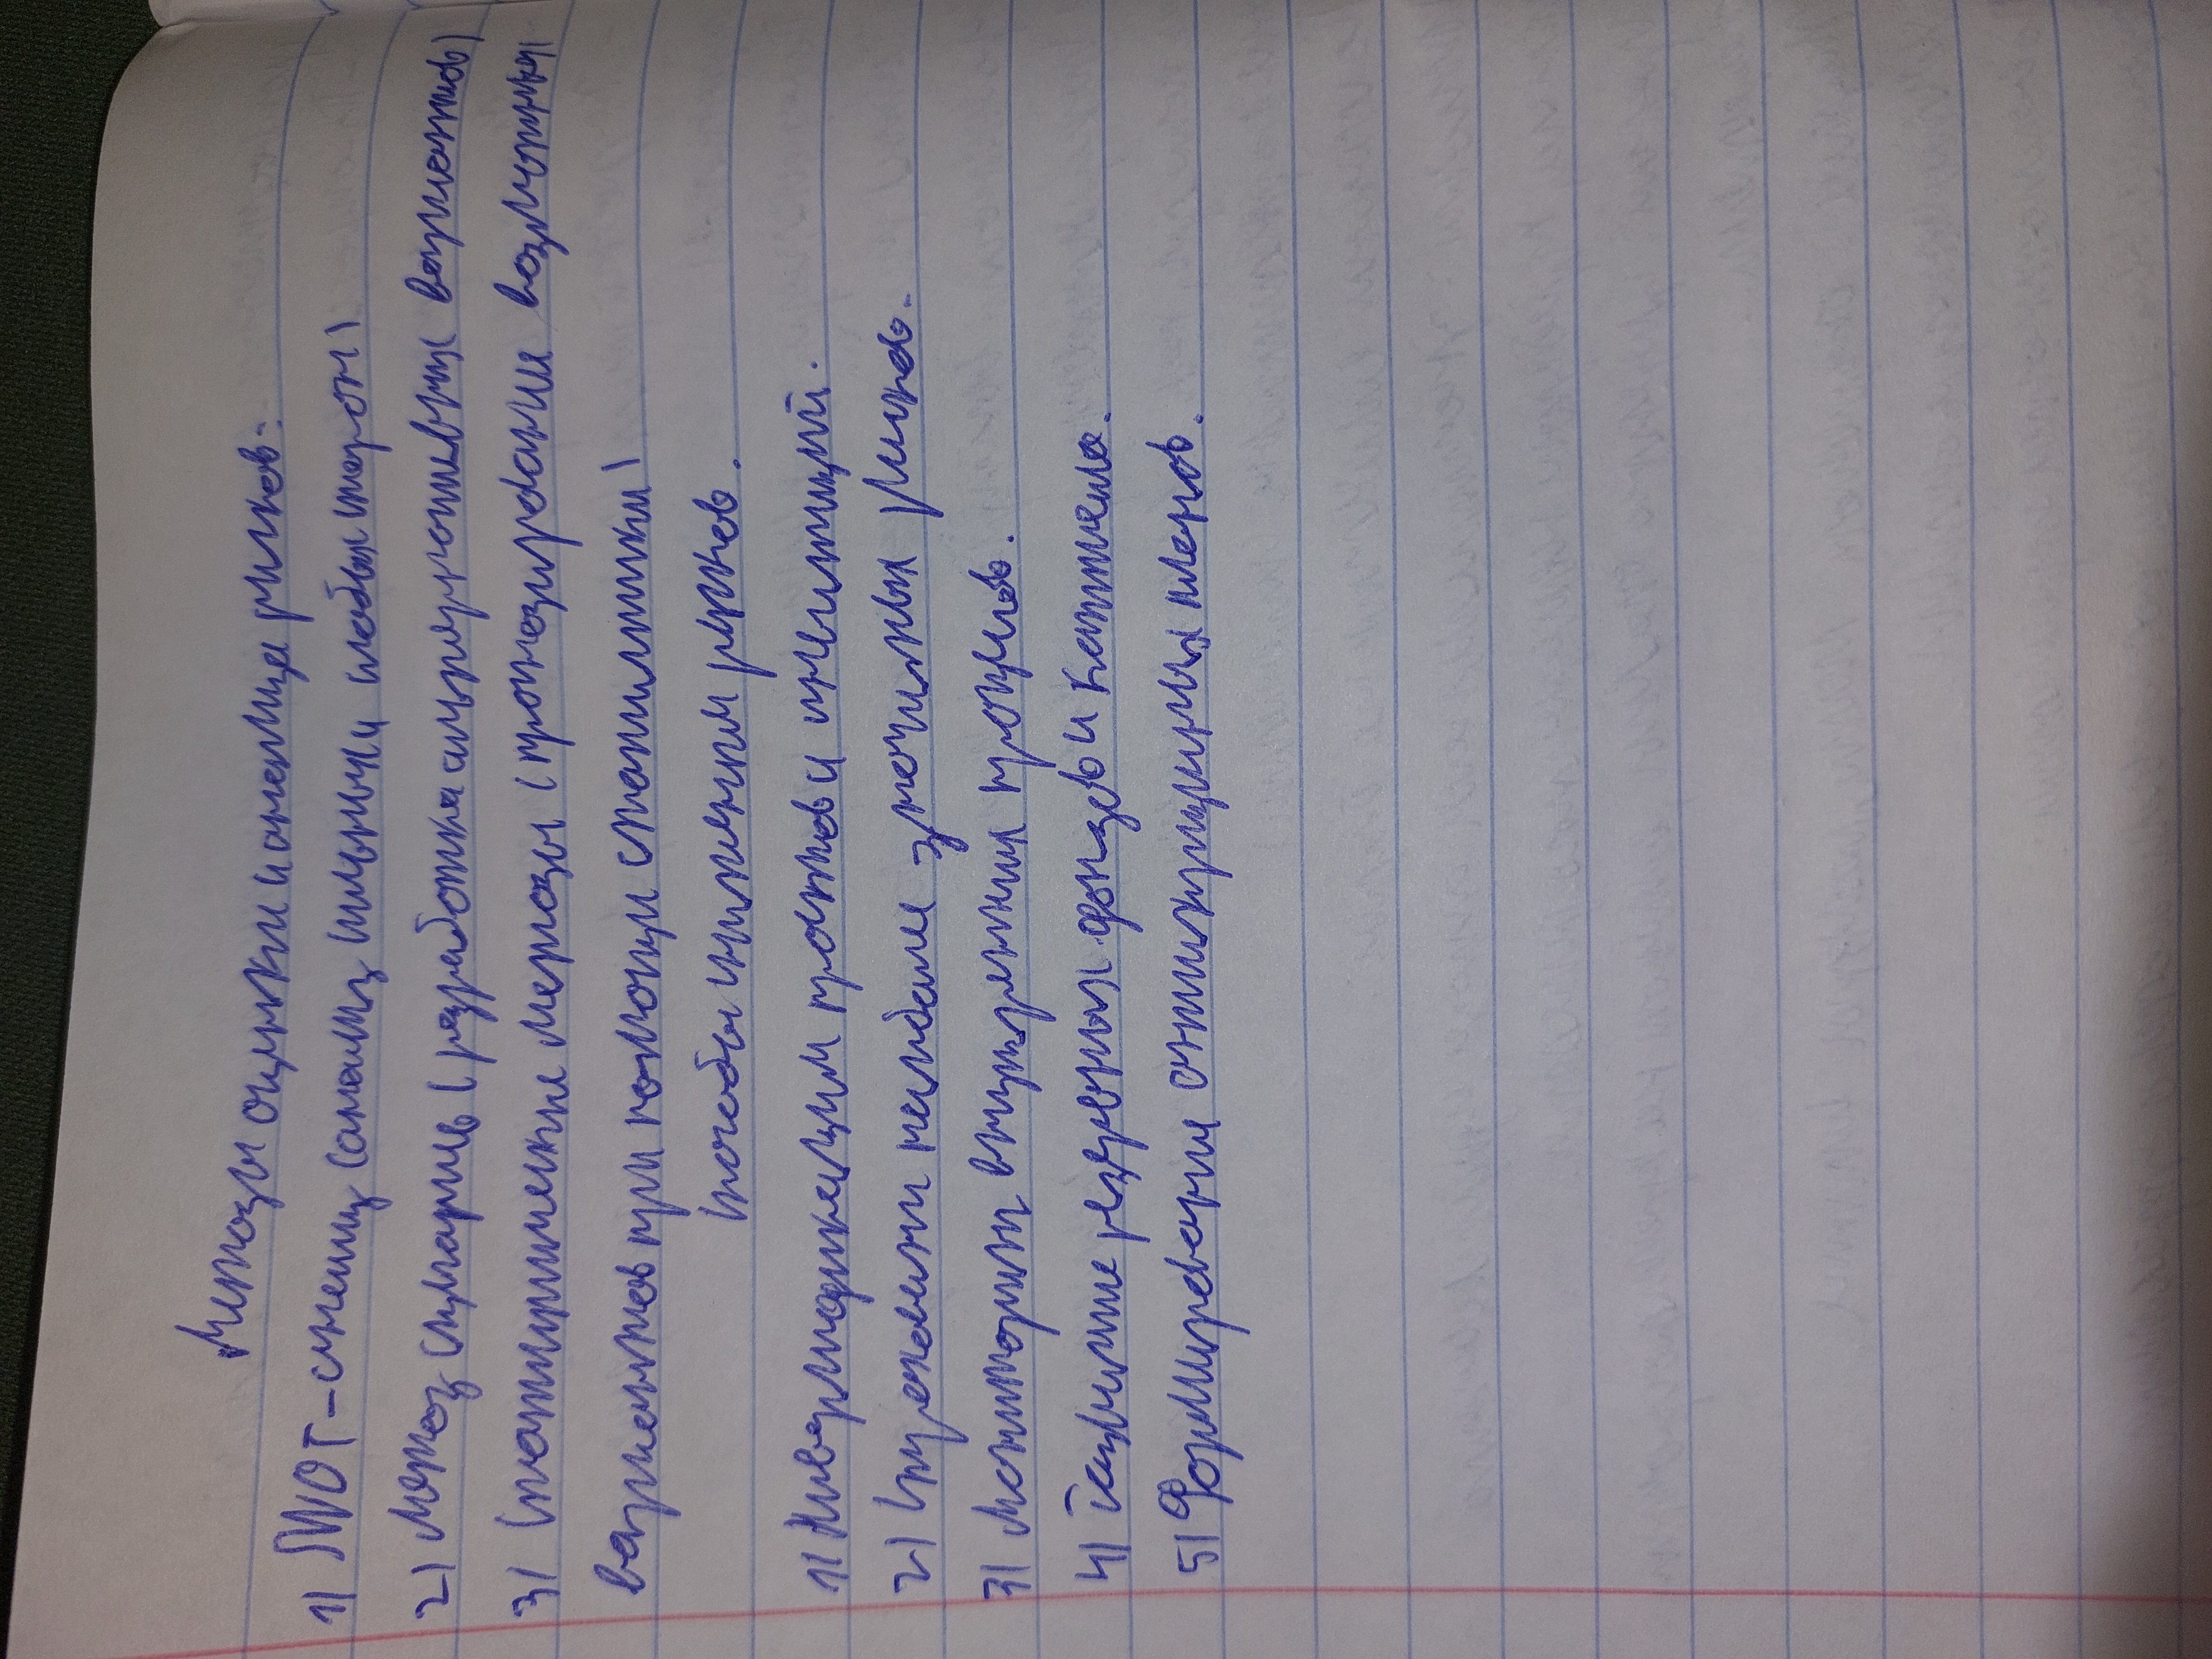 Методы оценки и анализа рисков:
1) SWOT-анализ (анализ сильных и слабых сторон)
2) Метод сценариев (разработка альтернативных вариантов)
3) Статистические методы (прогнозирование возможных
вариантов при помощи статистики)
Способы снижения рисков.
1) Диверсификация и инвестиций.
2) Страхование наиболее значимых рисков.
3) Мониторинг внутренних процессов.
4) резервных фондов и капитала.
5) Формирование антикризисных планов.